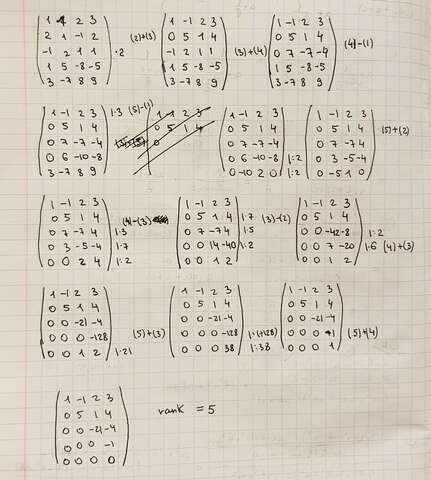 1 -1 2 3
2 1 -1 2
-1 2 1 1 ·2
1 5 -8 -5
3 -7 8 9
(2)+(3)
1 -1 2 3
0 5 1 4
-1 2 1 1
1 5 -8 -5
3 -7 8 9
(3)+(4)
1 -1 2 3
0 5 1 4
0 7 -7 -4
1 5 -8 -5
3 -7 8 9
(4)-(1)
1 -1 2 3 1·3 (5)-(1)
0 5 1 4
0 7 -7 -4
0 6 -10 -8
3 -7 8 9
1 -1 2 3
0 5 1 4
0
1 -1 2 3
0 5 1 4
0 7 -7 -4
0 6 -10 -8 1:2
0 -10 2 0 1:2
1 -1 2 3
0 5 1 4
0 7 -7 4
0 3 -5 -4
0 -5 1 0
(5)+(2)
1 -1 2 3
0 5 1 4
0 7 -7 4 1·3
0 3 -5 -4 1·7
0 0 2 4 1:2
(4)-(3)
1 -1 2 3
0 5 1 4 1·7
0 7 -7 4 1·5
0 0 14 -40 1:2
0 0 1 2
(3)-(2)
1 -1 2 3
0 5 1 4
0 0 -42 -8 1:2
0 0 7 -20 1·6 (4)+(3)
0 0 1 2
1 -1 2 3
0 5 1 4
0 0 -21 -4
0 0 0 -128
0 0 1 2 1·21
(5)+(3)
1 -1 2 3
0 5 1 4
0 0 -21 -4
0 0 0 -128 1:(+128)
0 0 0 38 1:38
1 -1 2 3
0 5 1 4
0 0 -21 -4
0 0 0 -1
0 0 0 1
(5)+(4)
1 -1 2 3
0 5 1 4
0 0 -21 -4
0 0 0 -1
0 0 0 0
rank = 5